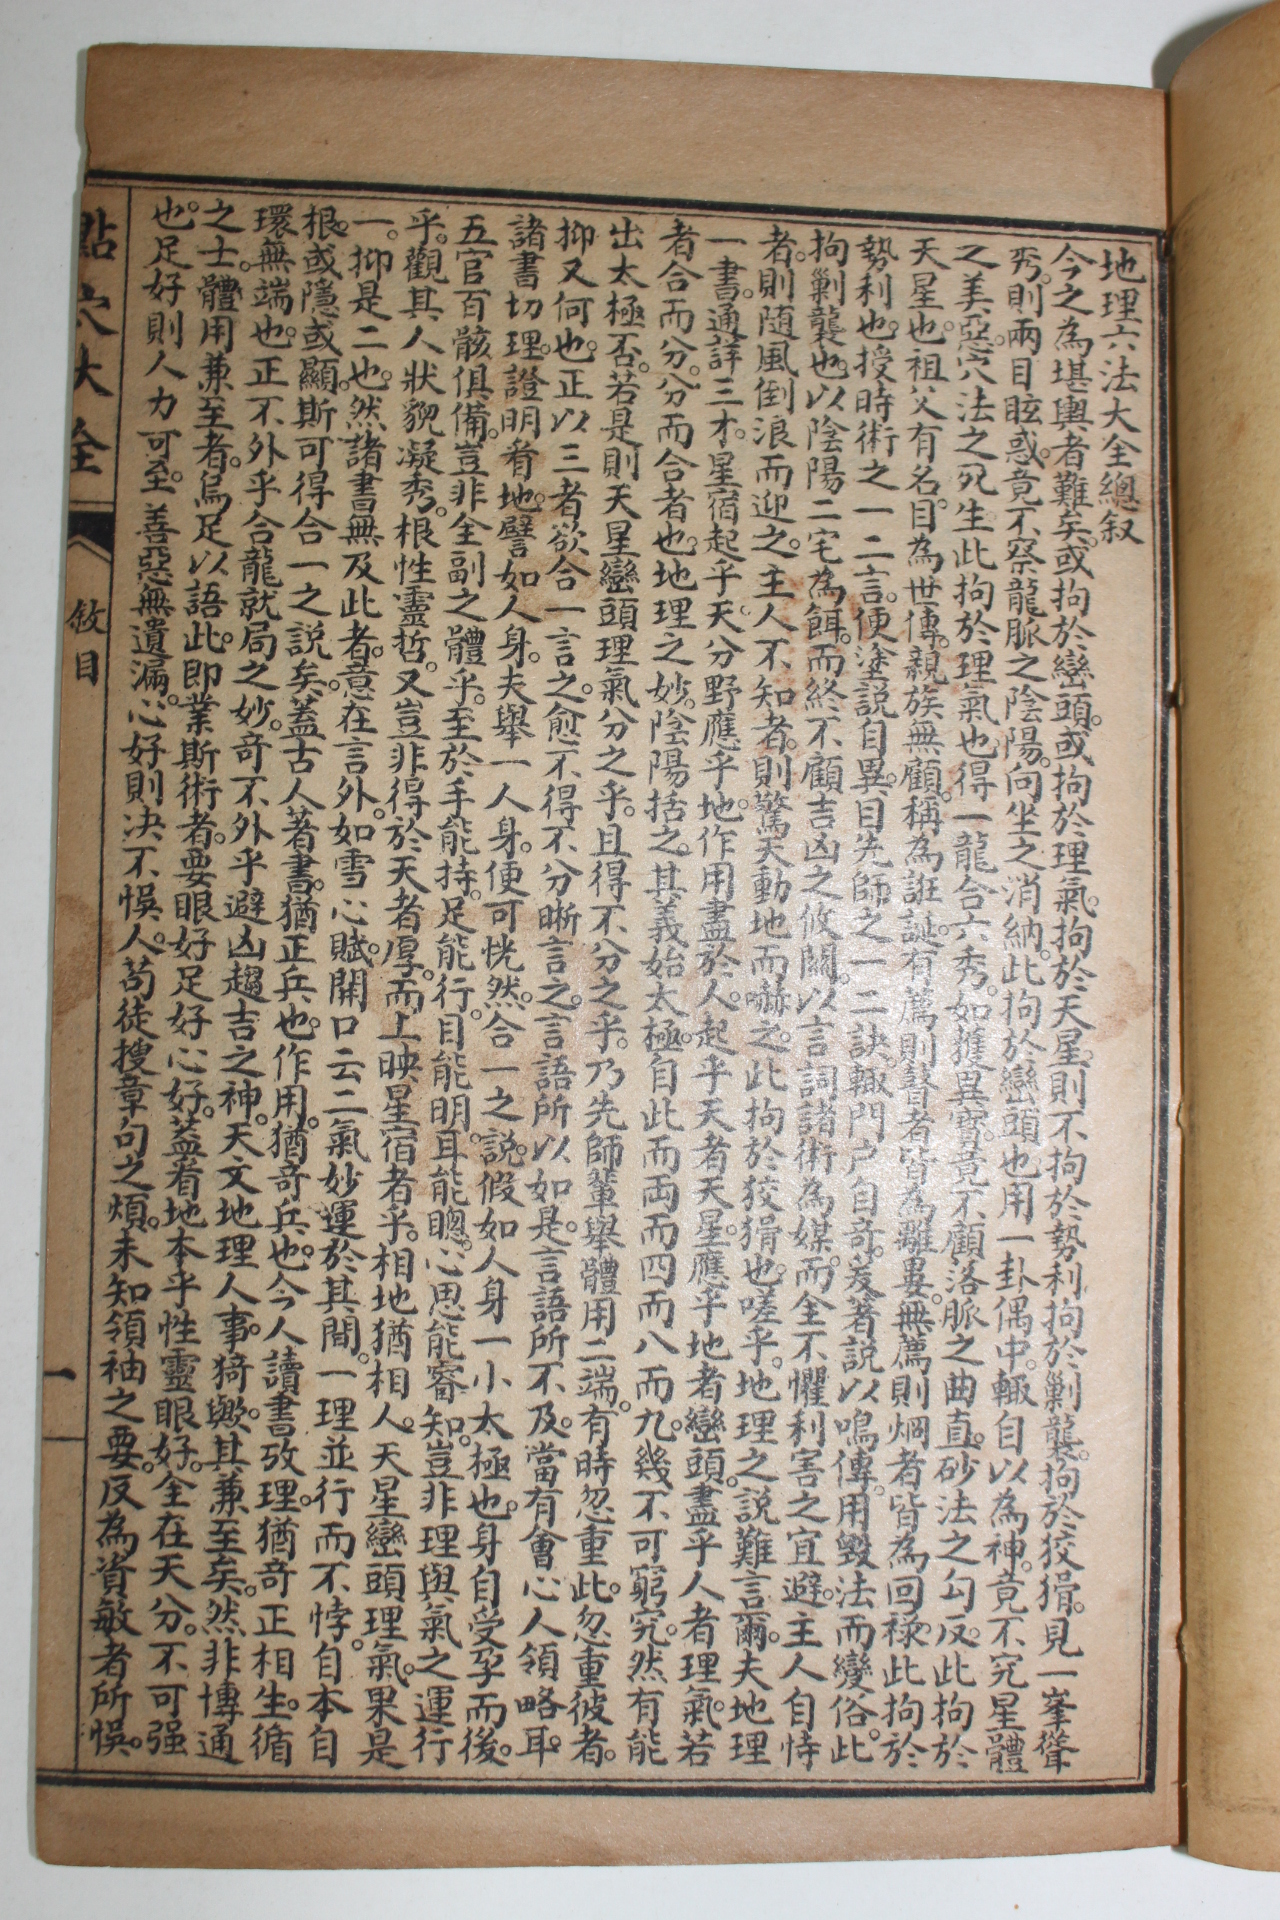 地理六法大全總敘
今之為堪輿者難矣。或拘於巒頭。或拘於理氣。拘於天星。則不拘於勢利。拘於剿襲。拘於狡猾。見一峯聳
秀。則兩目眩惑。竟不察龍脈之陰陽。向坐之消納。此拘於巒頭也。用一卦偶中。輒自以為神。竟不究星體
之美惡。穴法之死生。此拘於理氣也。得一龍合六秀。如獲異寶。竟不顧落脈之曲直。砂法之勾反。此拘於
天星也。祖父有名。目為世傳。親族無顧。稱為誑誕。有薦則瞽者皆為離婁。無薦則烱者皆為回祿。此拘於
勢利也。授時術之一二言。便塗說自異。目先師之一二訣。輒門戶自奇。爰著說以鳴傳。用毀法而變俗。此
拘剿襲也。以陰陽二宅為餌。而終不顧吉凶之攸關。以言詞諸術為媒。而全不懼利害之宜避。主人自恃
者。則随風倒浪而迎之。主人不知者。則驚天動地而嚇之。此拘於狡猾也。嗟乎。地理之說難言爾。夫地理
一書。通詳三才。星宿起乎天。分野應乎地。作用盡於人。起乎天者天星。應乎地者巒頭。盡乎人者理氣。若
者合而分。分而合者也。地理之妙。陰陽括之。其義始太極。自此而両而四而八而九。幾不可窮究。然有能
出太極否。若是則天星巒頭理氣分之乎。且得不分之乎。乃先師輩舉體用二端。有時忽重此。忽重彼者。
抑又何也。正以三者欲合一言之。愈不得不分晰言之。言語所以如是。言語所不及。當有會心人領略耳。
諸書切理。證明看地。譬如人身。夫舉一人身。便可恍然合一之說。假如人身一小太極也。身自受孕而後。
五官百骸俱備。豈非全副之體乎。至於手能持。足能行。目能明。耳能聰。心思能睿知。豈非理與氣之運行
乎。觀其人狀貌凝秀。根性靈哲。又豈非得於天者厚。而上映星宿者乎。相地猶相人。天星巒頭理氣。果是
一。抑是二也。然諸書無及此者。意在言外。如雪心賦開口云二氣妙運於其間。一理並行而不悖。自本自
根。或隱或顯。斯可得合一之說矣。蓋古人著書。猶正兵也。作用。猶奇兵也。今人讀書攷理。猶奇正相生。循
環無端也。正不外乎合龍就局之妙。奇不外乎避凶趨吉之神。天文地理人事。猗歟其兼至矣。然非博通
之士。體用兼至者。烏足以語此。即業斯術者。要眼好足好心好。蓋看地本乎性靈。眼好。全在天分。不可强
也。足好則人力可至。善惡無遺漏。心好則决不悞人。苟徒搜章句之煩。未知領袖之要。反為資敏者所悞。
點穴大全
敘目
一